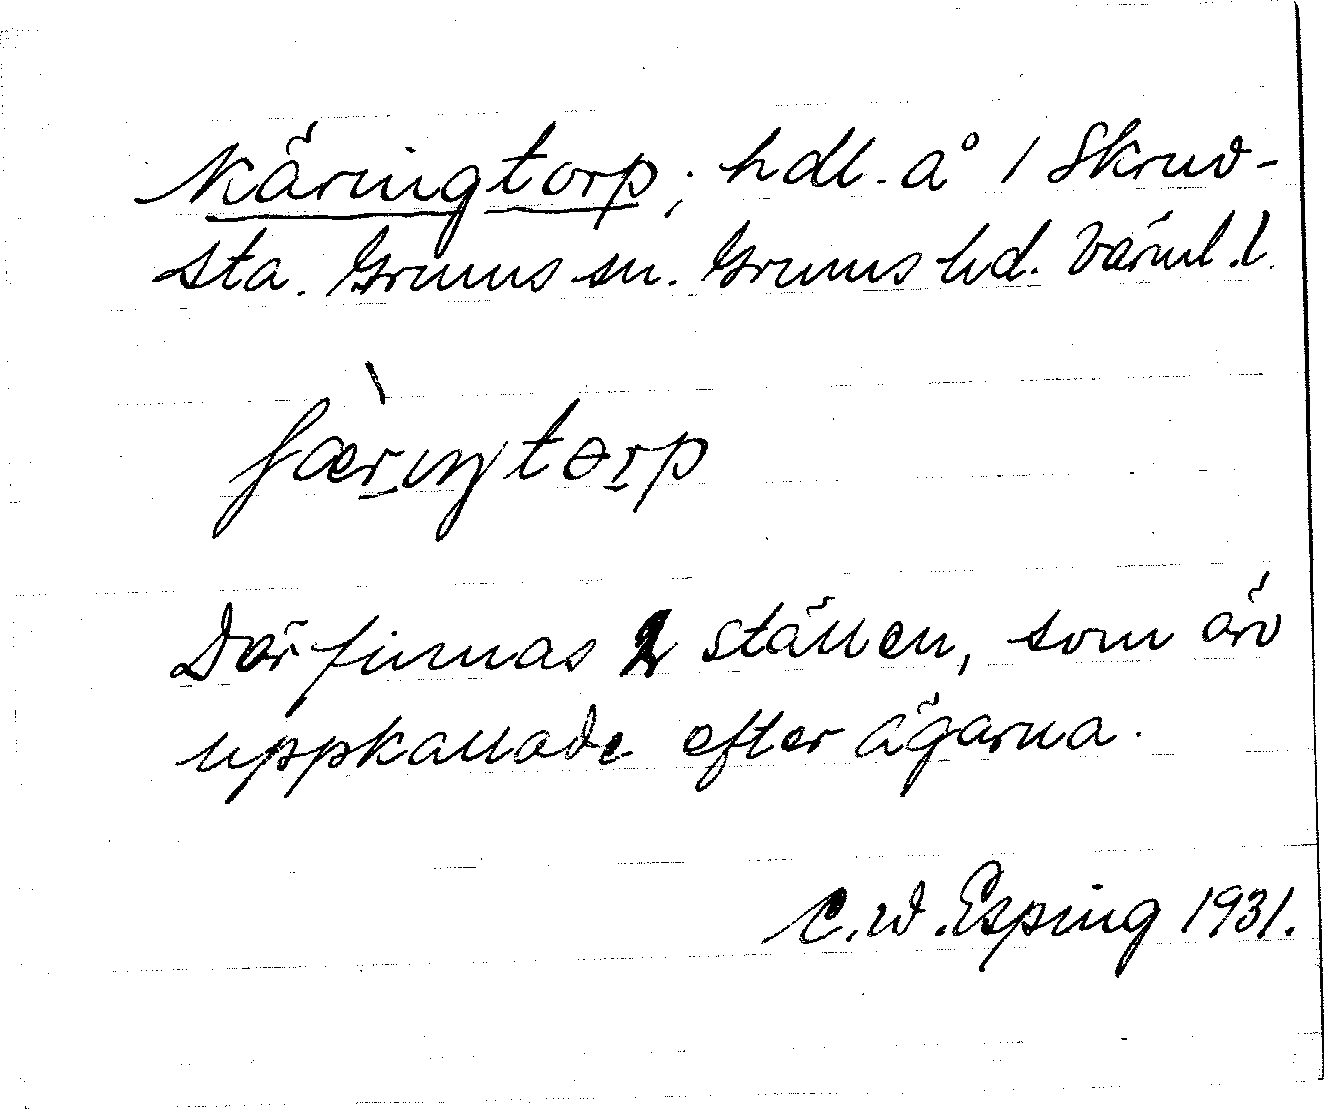 Käringtorp; hdl. å 1 Skruv-
sta. Grums sn. Grums hd. Värml. l.
ʃæ̀riŋtorp
Där finnas 2 ställen, som äro
uppkallade efter ägarna.
C. W. Esping 1931.